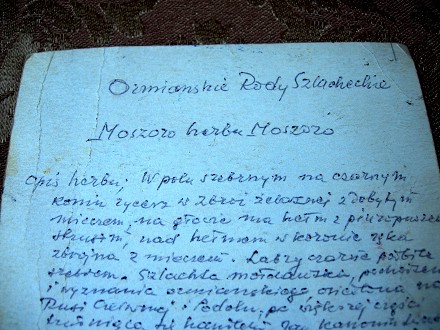 Ormianskie Rody Szlacheckie
Moszoro herbu Moszoro
Opis herbu; W polu srebrnym na czarnym
koniu rycerz w zbroi żelaznej z dobytym
mieczem, na głowie ma hełm z pióropuszem
strusim, nad hełmem w koronie ręka
zbrojna z mieczem. Labry czarne podbite
srebrem. Szlachta mołdawska, pochodzenia
i wyznania ormiańskiego osiadła na
Rusi Czerwonej i Podolu, po większej części
trudniąca się handlem. Jan